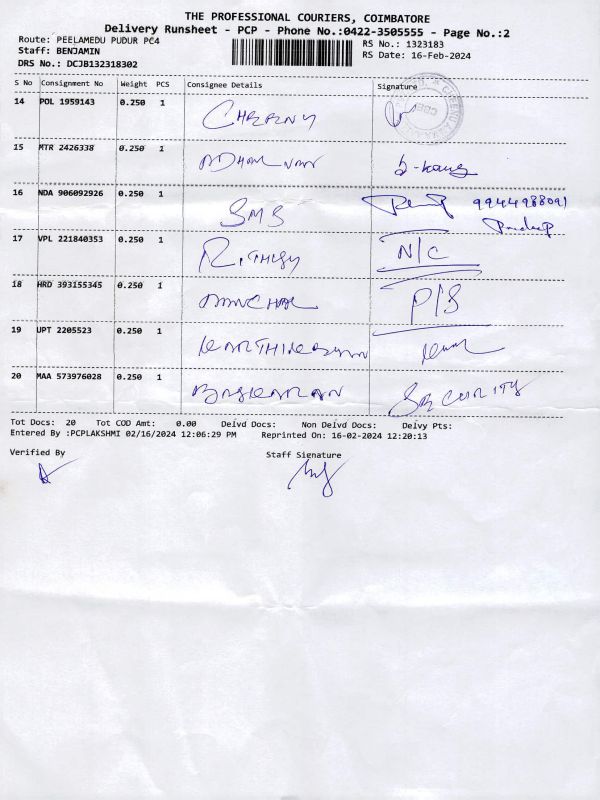 THE PROFESSIONAL COURIERS, COIMBATORE
Delivery Runsheet - PCP - Phone No.:0422-3505555 - Page No.:2
Route: PEELAMEDU PUDUR PC4 RS No.: 1323183
Staff: BENJAMIN RS Date: 16-Feb-2024
DRS No.: DCJB132318302
S No Consignment No Weight PCS Consignee Details Signature
14 POL 1959143 0.250 1
15 MTR 2426338 0.250 1
16 NDA 906092926 0.250 1 SMS 9944988091
17 VPL 221840353 0.250 1 N/C
18 HRD 393155345 0.250 1 P/S
19 UPT 2205523 0.250 1
20 MAA 573976028 0.250 1 BASKARAN SECURITY
Tot Docs: 20 Tot COD Amt: 0.00 Delvd Docs: Non Delvd Docs: Delvy Pts:
Entered By :PCPLAKSHMI 02/16/2024 12:06:29 PM Reprinted On: 16-02-2024 12:20:13
Verified By Staff Signature